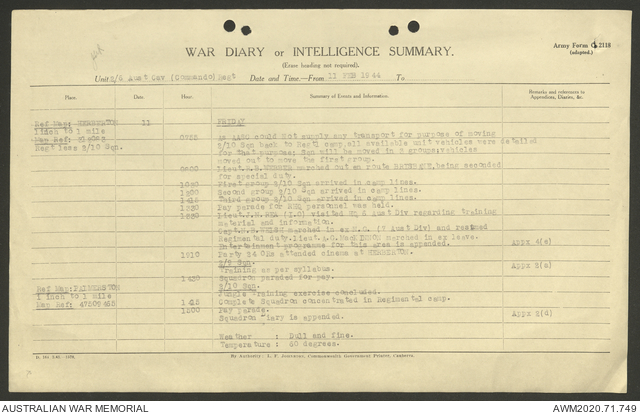 Army Form C. 2118
(adapted.)
WAR DIARY or INTELLIGENCE SUMMARY.
(Erase heading not required).
Unit 2/6 Aust Cav (Commando) Regt Date and Time—From 11 FEB 1944 To
Place. Date. Hour. Summary of Events and Information. Remarks and references to
Appendices, Diaries, &c.
Ref Map: HERBERTON 11 FRIDAY
1 inch to 1 mile
Map Ref:
Regt less 2/10 Sqn. As AASC could not supply any transport for purpose of moving
2/10 Sqn back to Regtl camp, all available unit vehicles were detailed
for that purpose; Sqn will be moved in 3 groups; vehicles
moved out to move the first group.
Lieut marched out en route BRISBANE, being seconded
for special duty.
First group 2/10 Sqn arrived in camp lines.
Second group 2/10 Sqn arrived in camp lines.
1415 Third group 2/10 Sqn arrived in camp lines.
Pay parade for RHQ personnel was held.
Lieut. (I.O) visited HQ Aust Div regarding training
material and information.
Capt. WELSH marched in ex H.Q. (7 Aust Div) and resumed
Regimental duty. Lieut. marched in ex leave.
Entertainment programme for this area is appended. Appx 4(e)
1910 Party 24 ORs attended cinema at HERBERTON.
2/9 Sqn:
Training as per syllabus. Appx 2(c)
Squadron paraded for pay.
2/10 Sqn:
Ref Map: PALMERSTON Jungle Training exercise concluded.
1 inch to 1 mile 1415 Complete Squadron concentrated in Regimental camp.
Map Ref: 1500 Pay parade.
Squadron diary is appended. Appx 2(d)
Weather : Dull and fine.
Temperature : 80 degrees.
By Authority: L. F. Johnston, Commonwealth Government Printer, Canberra.
AUSTRALIAN WAR MEMORIAL AWM2020.71.749